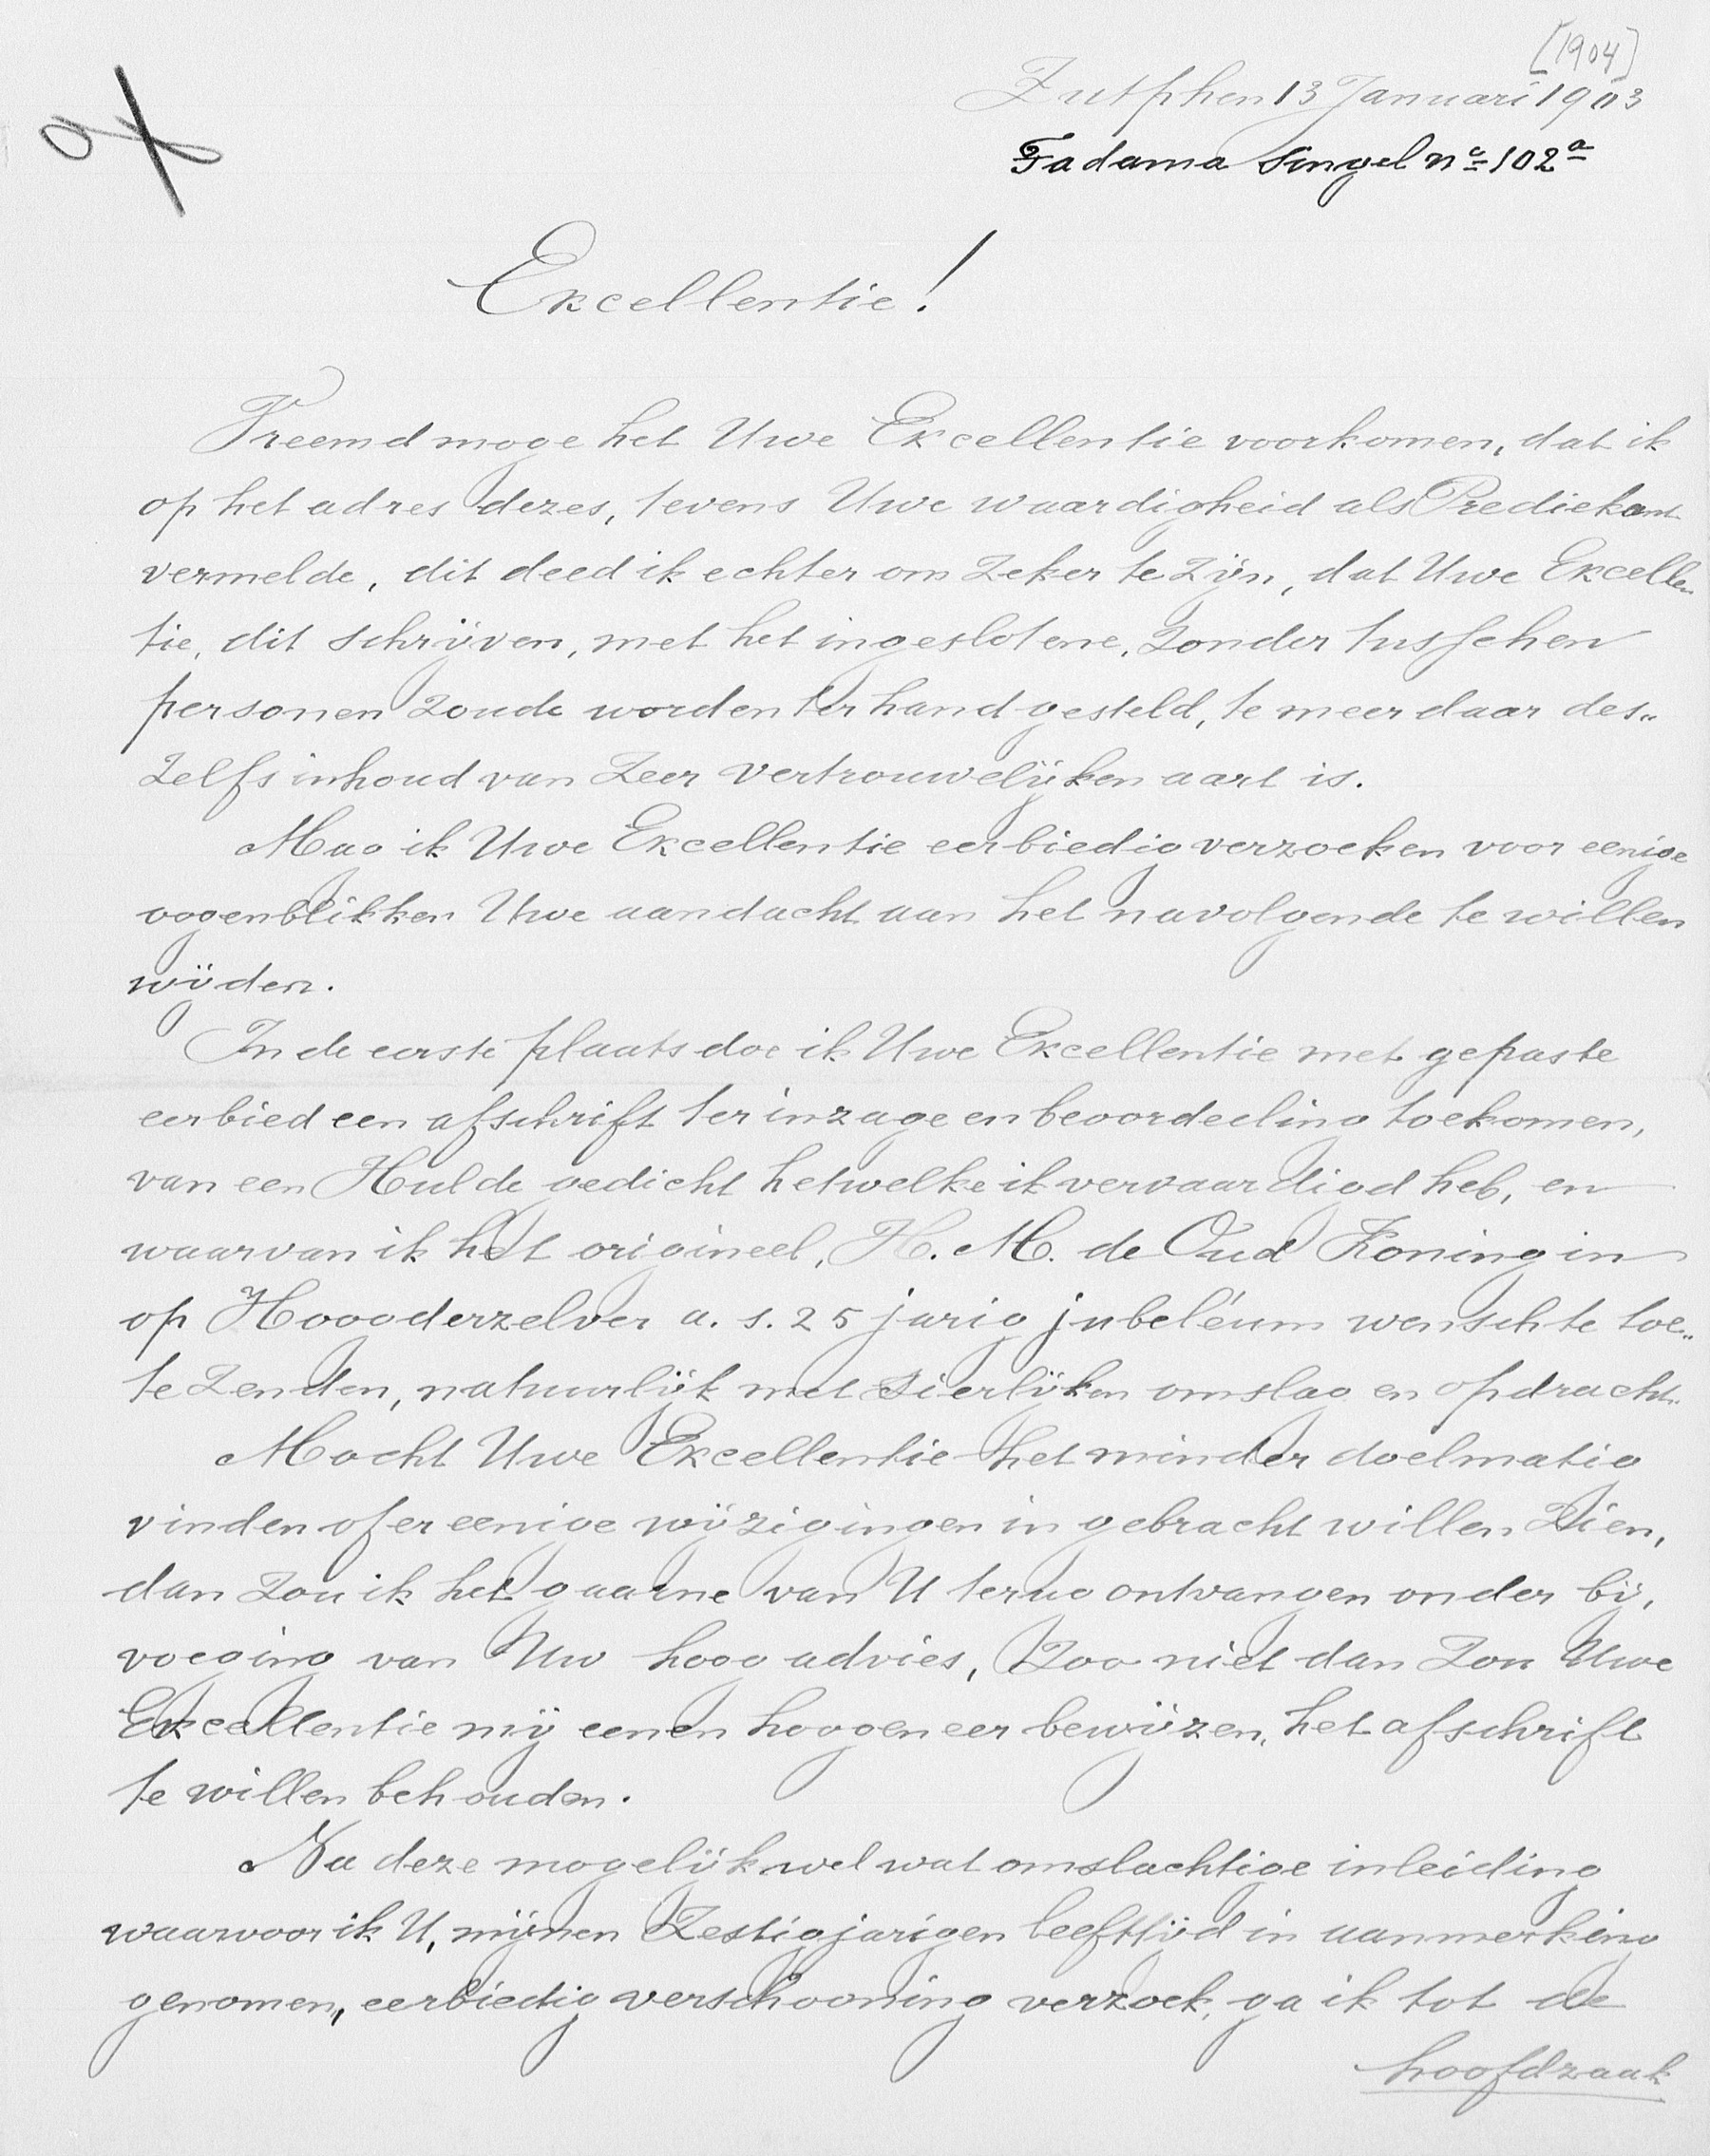 [1904]
Zutphen 13 Januari 1903
Tadama Singel no 102a
Excellentie!
Vreemd moge het Uwe Excellentie voorkomen, dat ik
op het adres dezes, tevens Uwe waardigheid als Prediekant
vermelde, dit deed ik echter om zeker te zijn, dat Uwe Excellen
tie, dit schrijven, met het ingeslotene, zonder tusschen
personen zoude worden ter hand gesteld, te meer daar des„
zelfs inhoud van zeer vertrouwelijken aart is.
Mag ik Uwe Excellentie eerbiedig verzoeken voor eenige
oogenblikken Uwe aandacht aan het navolgende te willen
wijden.
In de eerste plaats doe ik Uwe Excellentie met gepaste
eerbied een afschrift ter inzage en beoordeeling toekomen,
van een Hulde gedicht hetwelke ik vervaardigd heb, en
waarvan ik het origineel, H. M. de Oud Koningin
op Hoogderzelver a. s. 25 jarig jubeléum wenschte toe„
te zenden, natuurlijk met sierlijken omslag en opdracht.
Mocht Uwe Excellentie het minder doelmatig
vinden of er eenige wijzigingen in gebracht willen zien,
dan zou ik het gaarne van U terug ontvangen onder bij,
voeging van Uw hoog advies, zoo niet dan zou Uwe
Excellentie mij eenen hoogen eer bewijzen, het afschrift
te willen behouden.
Na deze mogelijk wel wat omslachtige inleiding
waarvoor ik U, mijnen zestigjarigen leeftijd in aanmerking
genomen, eerbiedig verschooning verzoek, ga ik tot de
hoofdzaak